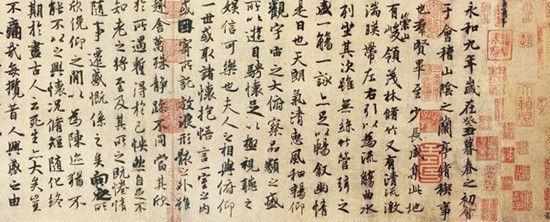 永和九年歲在癸丑暮春之初會
于會稽山陰之蘭亭脩稧事
也群賢畢至少長咸集此地
有崇山峻領茂林脩竹又有清流激
湍暎帶左右引以為流觴曲水
列坐其次雖無絲竹管弦之
盛一觴一詠亦足以暢敘幽情
是日也天朗氣清惠風和暢仰
觀宇宙之大俯察品類之盛
所以遊目騁懷足以極視聽之
娛信可樂也夫人之相與俯仰
一世或取諸懷抱悟言一室之內
或因寄所託放浪形骸之外雖
趣舍萬殊靜躁不同當其欣
於所遇蹔得於己怏然自足不
知老之將至及其所之既惓情
隨事遷感慨係之矣向之所
欣俛仰之閒以為陳迹猶不
能不以之興懷況脩短隨化終
期於盡古人云死生亦大矣豈
不痛哉每攬昔人興感之由